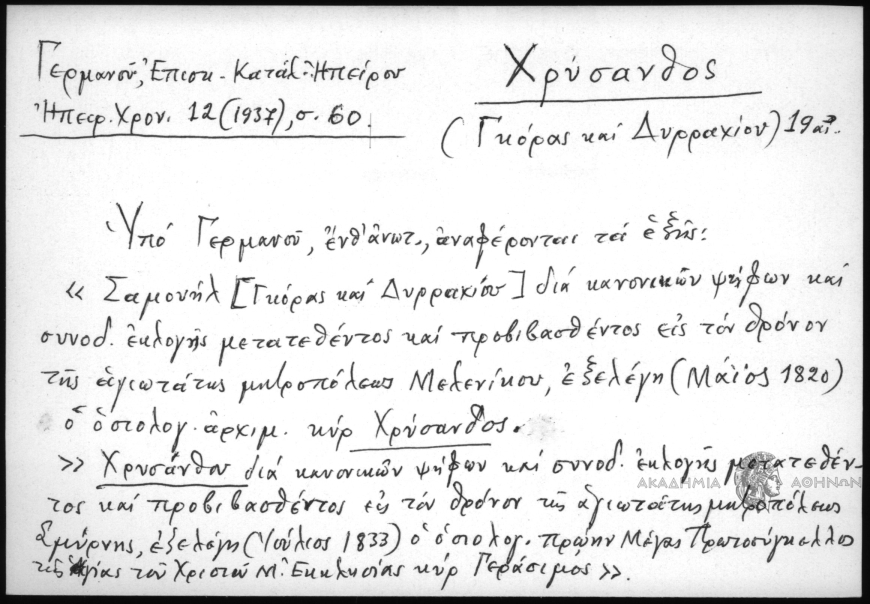 Γερμανοῦ, Ἐπισκ - Κατάλ. Ἠπείρου
Ἠπειρ. Χρον. 12 (1937), σ. 60.
Χρύσανθος
(Γκόρας καί Δυρραχίου) 19 αἰ.
Ὑπό Γερμανοῦ, ἔνθ' ἀνωτ., ἀναφέρονται τά ἑξῆς:
« Σαμουήλ [Γκόρας καί Δυρραχίου] διά κανονικῶν ψήφων καί
συνοδ. ἐκλογῆς μετατεθέντος καί προβιβασθέντος εἰς τόν θρόνον
τῆς ἁγιωτάτης μητροπόλεως Μελενίκου, ἐξελέγη (Μάϊος 1820)
ὁ ὁσιολογ. ἀρχιμ. κύρ Χρύσανθος.
» Χρυσάνθου διά κανονικῶν ψήφων καί συνοδ. ἐκλογῆς μετατεθέν-
τος καί προβιβασθέντος εἰς τόν θρόνον τῆς ἁγιωτάτης μητροπόλεως
Σμύρνης, ἐξελέγη (Ἰούλιος 1833) ὁ ὁσιολογ. πρώην Μέγας Πρωτοσύγκελλος
τῆς Ἁγίας τοῦ Χριστοῦ Μ. Ἐκκλησίας κύρ Γεράσιμος ».
ΑΚΑΔΗΜΙΑ ΑΘΗΝΩΝ